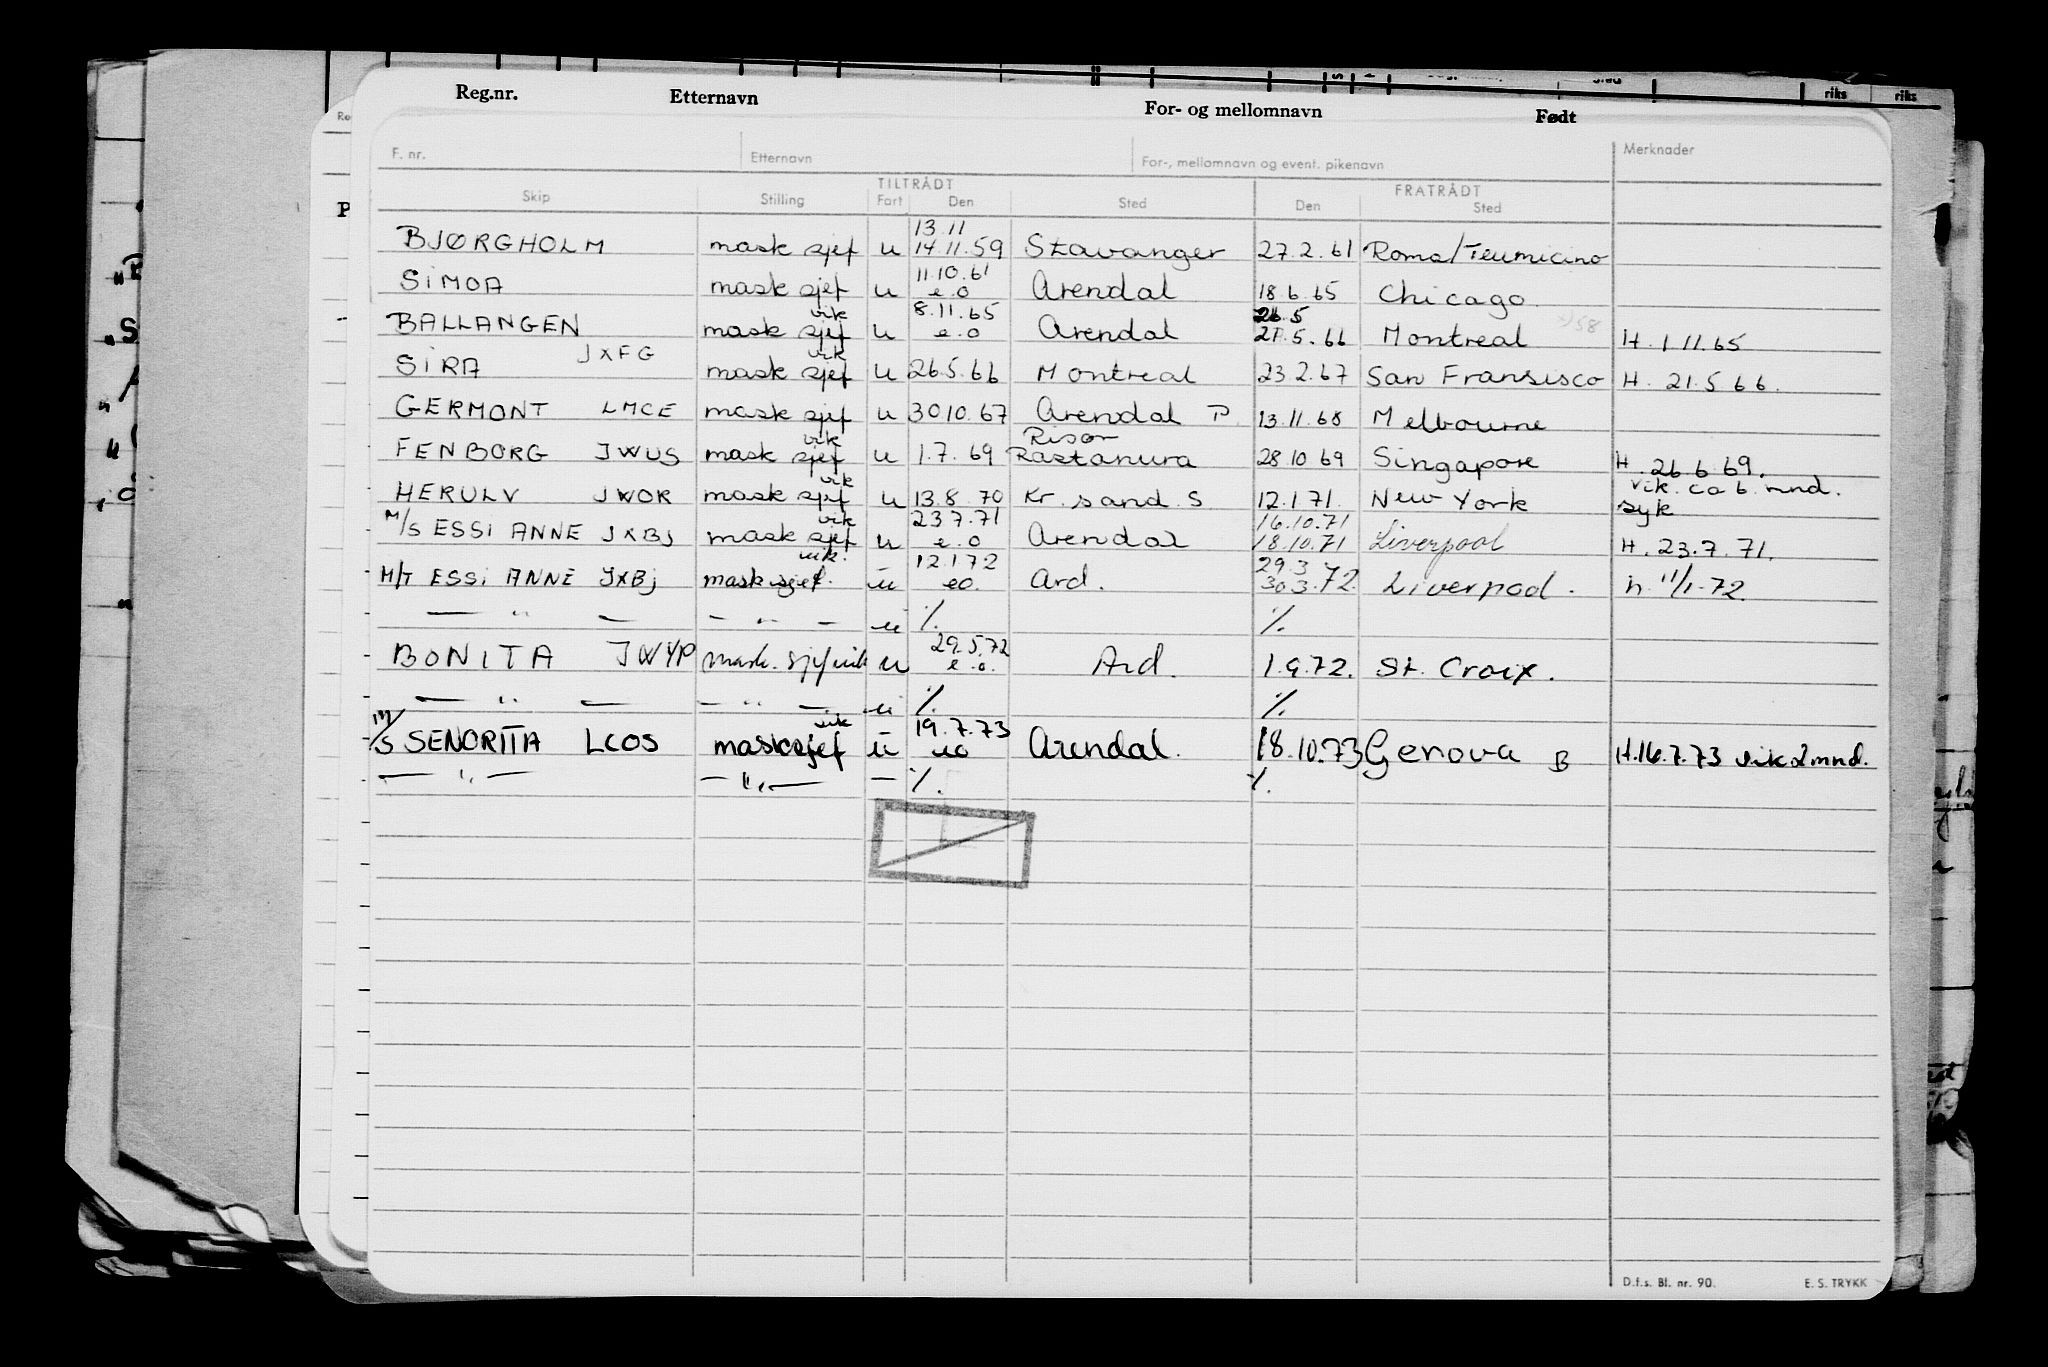 Reg.nr. Etternavn For- og mellomnavn Født
riks riks
F. nr. Etternavn For-, mellomnavn og event. pikenavn Merknader
TILTRÅDT FRATRÅDT
Skip Stilling Fart Den Sted Den Sted
13.11
BJØRGHOLM mask sjef u 14.11.59 Stavanger 27.2.61 Roma/
11.10.61
SIMOA mask sjef u e.o Arendal 18.6.65 Chicago.
vik 8.11.65 26.5
BALLANGEN mask sjef u e.o Arendal 21.5.66 Montreal H. 1 11.65
JXFG vik
SIRA mask sjef u 26.5.66 Montreal 23 2.67 San Fransisco H. 21.5 66.
GERMONT LMCE mask sjef u 30 10.67 Arendal P. 13.11.68 Melbourne
vik Risør
FENBORG JWUS mask sjef u 1.7.69 Rastanura 28 10 69 Singapore H. 26 6 69.
vik vik. ca 6 mnd.
HERULV JWOR mask sjef u 13.8.70 Kr. sand. S 12.1 71. New York syk
vik 23 7.71 16.10.71
M/S ESSI ANNE JXBJ mask sjef u e.o Arendal 18.10.71 Liverpool H. 23.7.71.
vik. 12.1 72 29.3
M/T ESSI ANNE JXBJ mask sjef. u eo. Ard. 30 3.72. Liverpool. h. 11/1-72.
— " — — " — u %. %.
29.5.72
BONITA JWYP mask. sjef vik u e.o. Ard. 1.9.72. St. Croix.
— " — — " — u %. %.
vik 19.7.73
M/S SENORITA LCOS mask sjef u eo Arendal. 18.10.73 Genova B H.16.7.73 vik 2 mnd.
— " — — " — — %. %.
D.f.s. Bl. nr. 90. E. S. TRYKK